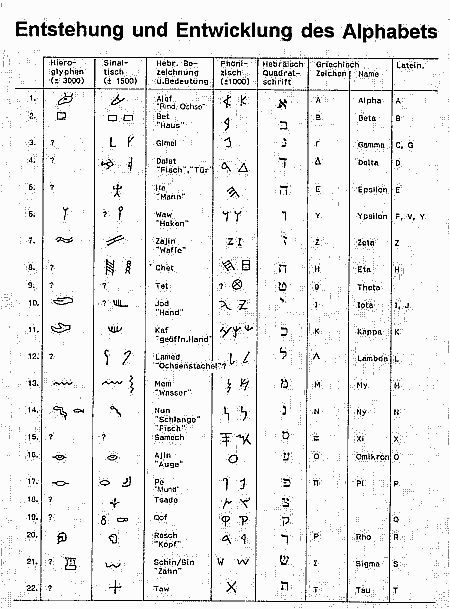 Entstehung und Entwicklung des Alphabets
Hiero- Sinai- Hebr. Be- Phöni- Hebräisch Griechisch Latein.
glyphen tisch zeichnung zisch Quadrat- Zeichen Name
(± 3000) (± 1500) u.Bedeutung (±1000) schrift
1. Alef א A Alpha A
"Rind, Ochse"
2. Bet ב B Beta B
"Haus"
3. ? Gimel ג Γ Gamma C, G
4. ? Dalet ד Δ Delta D
"Fisch","Tür"
5. ? He ה E Epsilon E
"Mann"
6. ? Waw ו Y Ypsilon F, V, Y
"Haken"
7. Zajin ז Z Zeta Z
"Waffe"
8. ? Chet ח H Eta H
9. ? ? Tet ? ט Theta
10. ? Jod י I Iota I, J
"Hand"
11. Kaf כ K Kappa K
"geöffn.Hand"
12. ? Lamed ל Λ Lambda L
"Ochsenstachel"?
13. Mem מ M My M
"Wasser"
14. Nun נ N Ny N
"Schlange"
"Fisch"
15. ? ? Samech ס Ξ Xi X
16. Ajin ע O Omikron O
"Auge"
17. Pe פ Π Pi P
"Mund"
18. ? Tsade צ
19. ? Qof ק Q
20. Resch ר P Rho R
"Kopf"
21. ? Schin/Sin ש Σ Sigma S
"Zahn"
22. ? Taw ת T Tau T